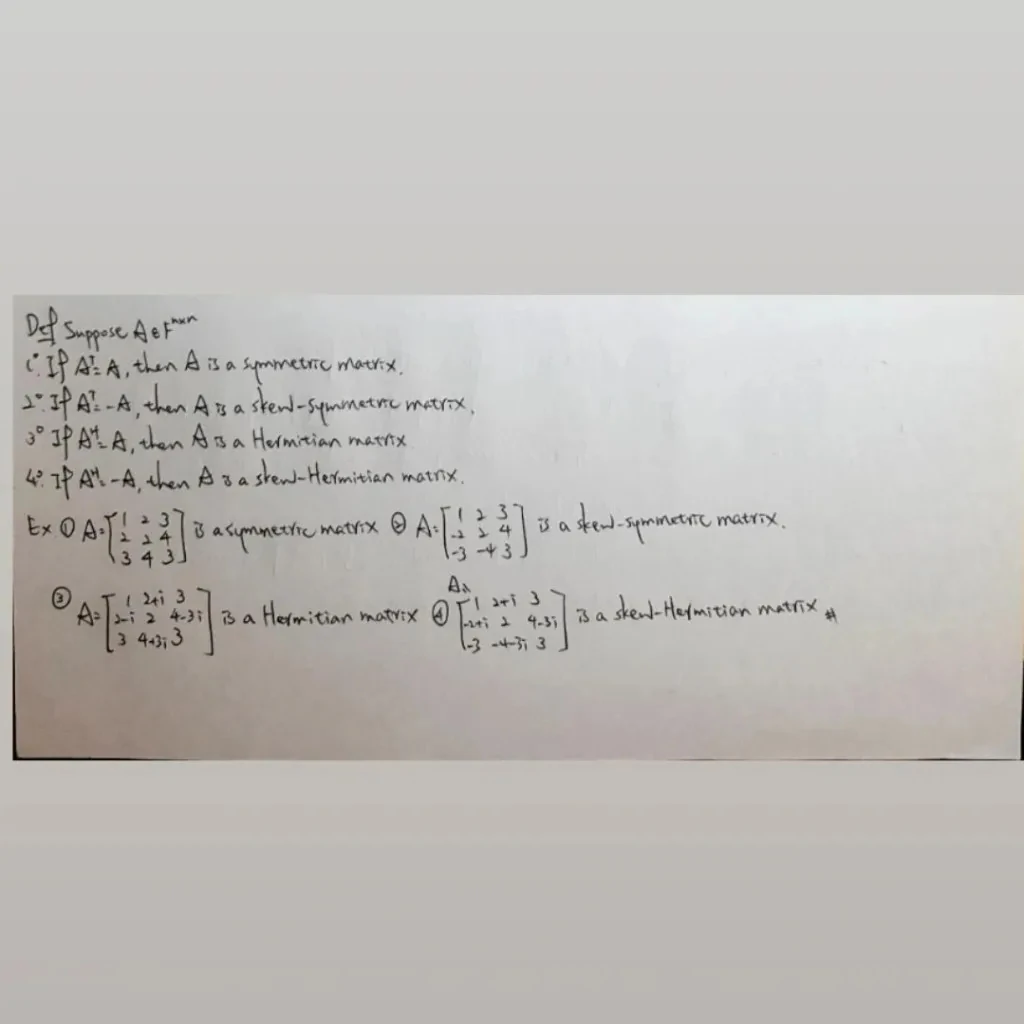 Def Suppose A∈F^{n×n}
1°. If A^T=A, then A is a symmetric matrix.
2°. If A^T=-A, then A is a skew-symmetric matrix.
3° If A^H=A, then A is a Hermitian matrix
4°. If A^H=-A, then A is a skew-Hermitian matrix.
Ex ① A=[1 2 3; 2 2 4; 3 4 3] is a symmetric matrix ② A=[1 2 3; -2 2 4; -3 -4 3] is a skew-symmetric matrix.
③ A=[1 2+i 3; 2-i 2 4-3i; 3 4+3i 3] is a Hermitian matrix ④ A=[1 2+i 3; -2+i 2 4-3i; -3 -4-3i 3] is a skew-Hermitian matrix #